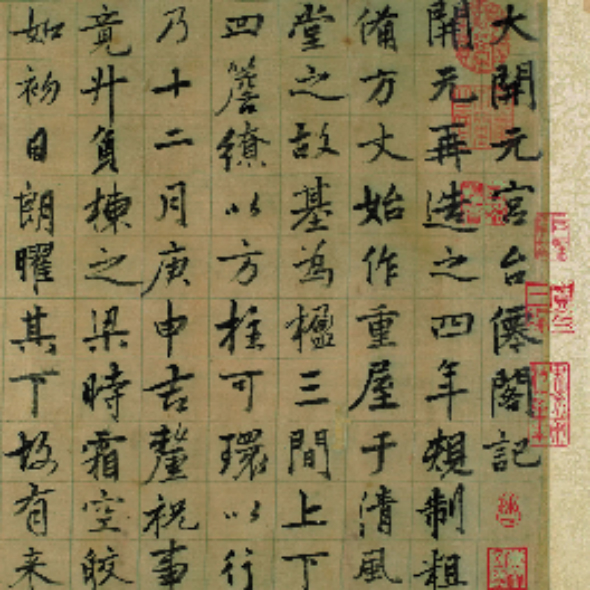 大開元宮台僊閣記
開元再造之四年規制粗
備方丈始作重屋于清風
堂之故基為楹三間上下
四簷繚以方柱可環以行
乃十二月庚申吉釐祝事
竟升負棟之梁時霜空皎
如初日朗曜其下故有来